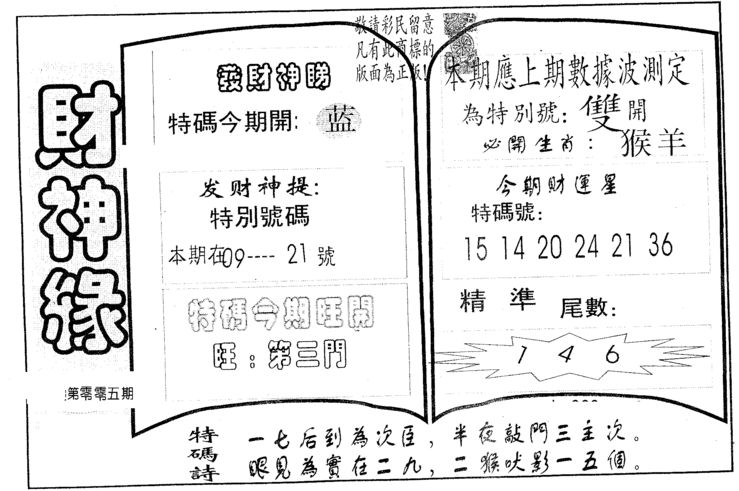 財神緣
第零零五期
敬請彩民留意
凡有此商標的
版面為正版!
發財神睇
特碼今期開: 蓝
发财神提:
特別號碼
本期在09---- 21號
特碼今期旺開
旺:第三門
本期應上期數據波測定
為特別號: 雙開
必開生肖: 猴羊
今期財運星
特碼號:
15 14 20 24 21 36
精準 尾數:
1 4 6
特碼詩
一七后到為次臣,半夜敲門三主次。
眼見為實在二九,二猴吠影一五個。